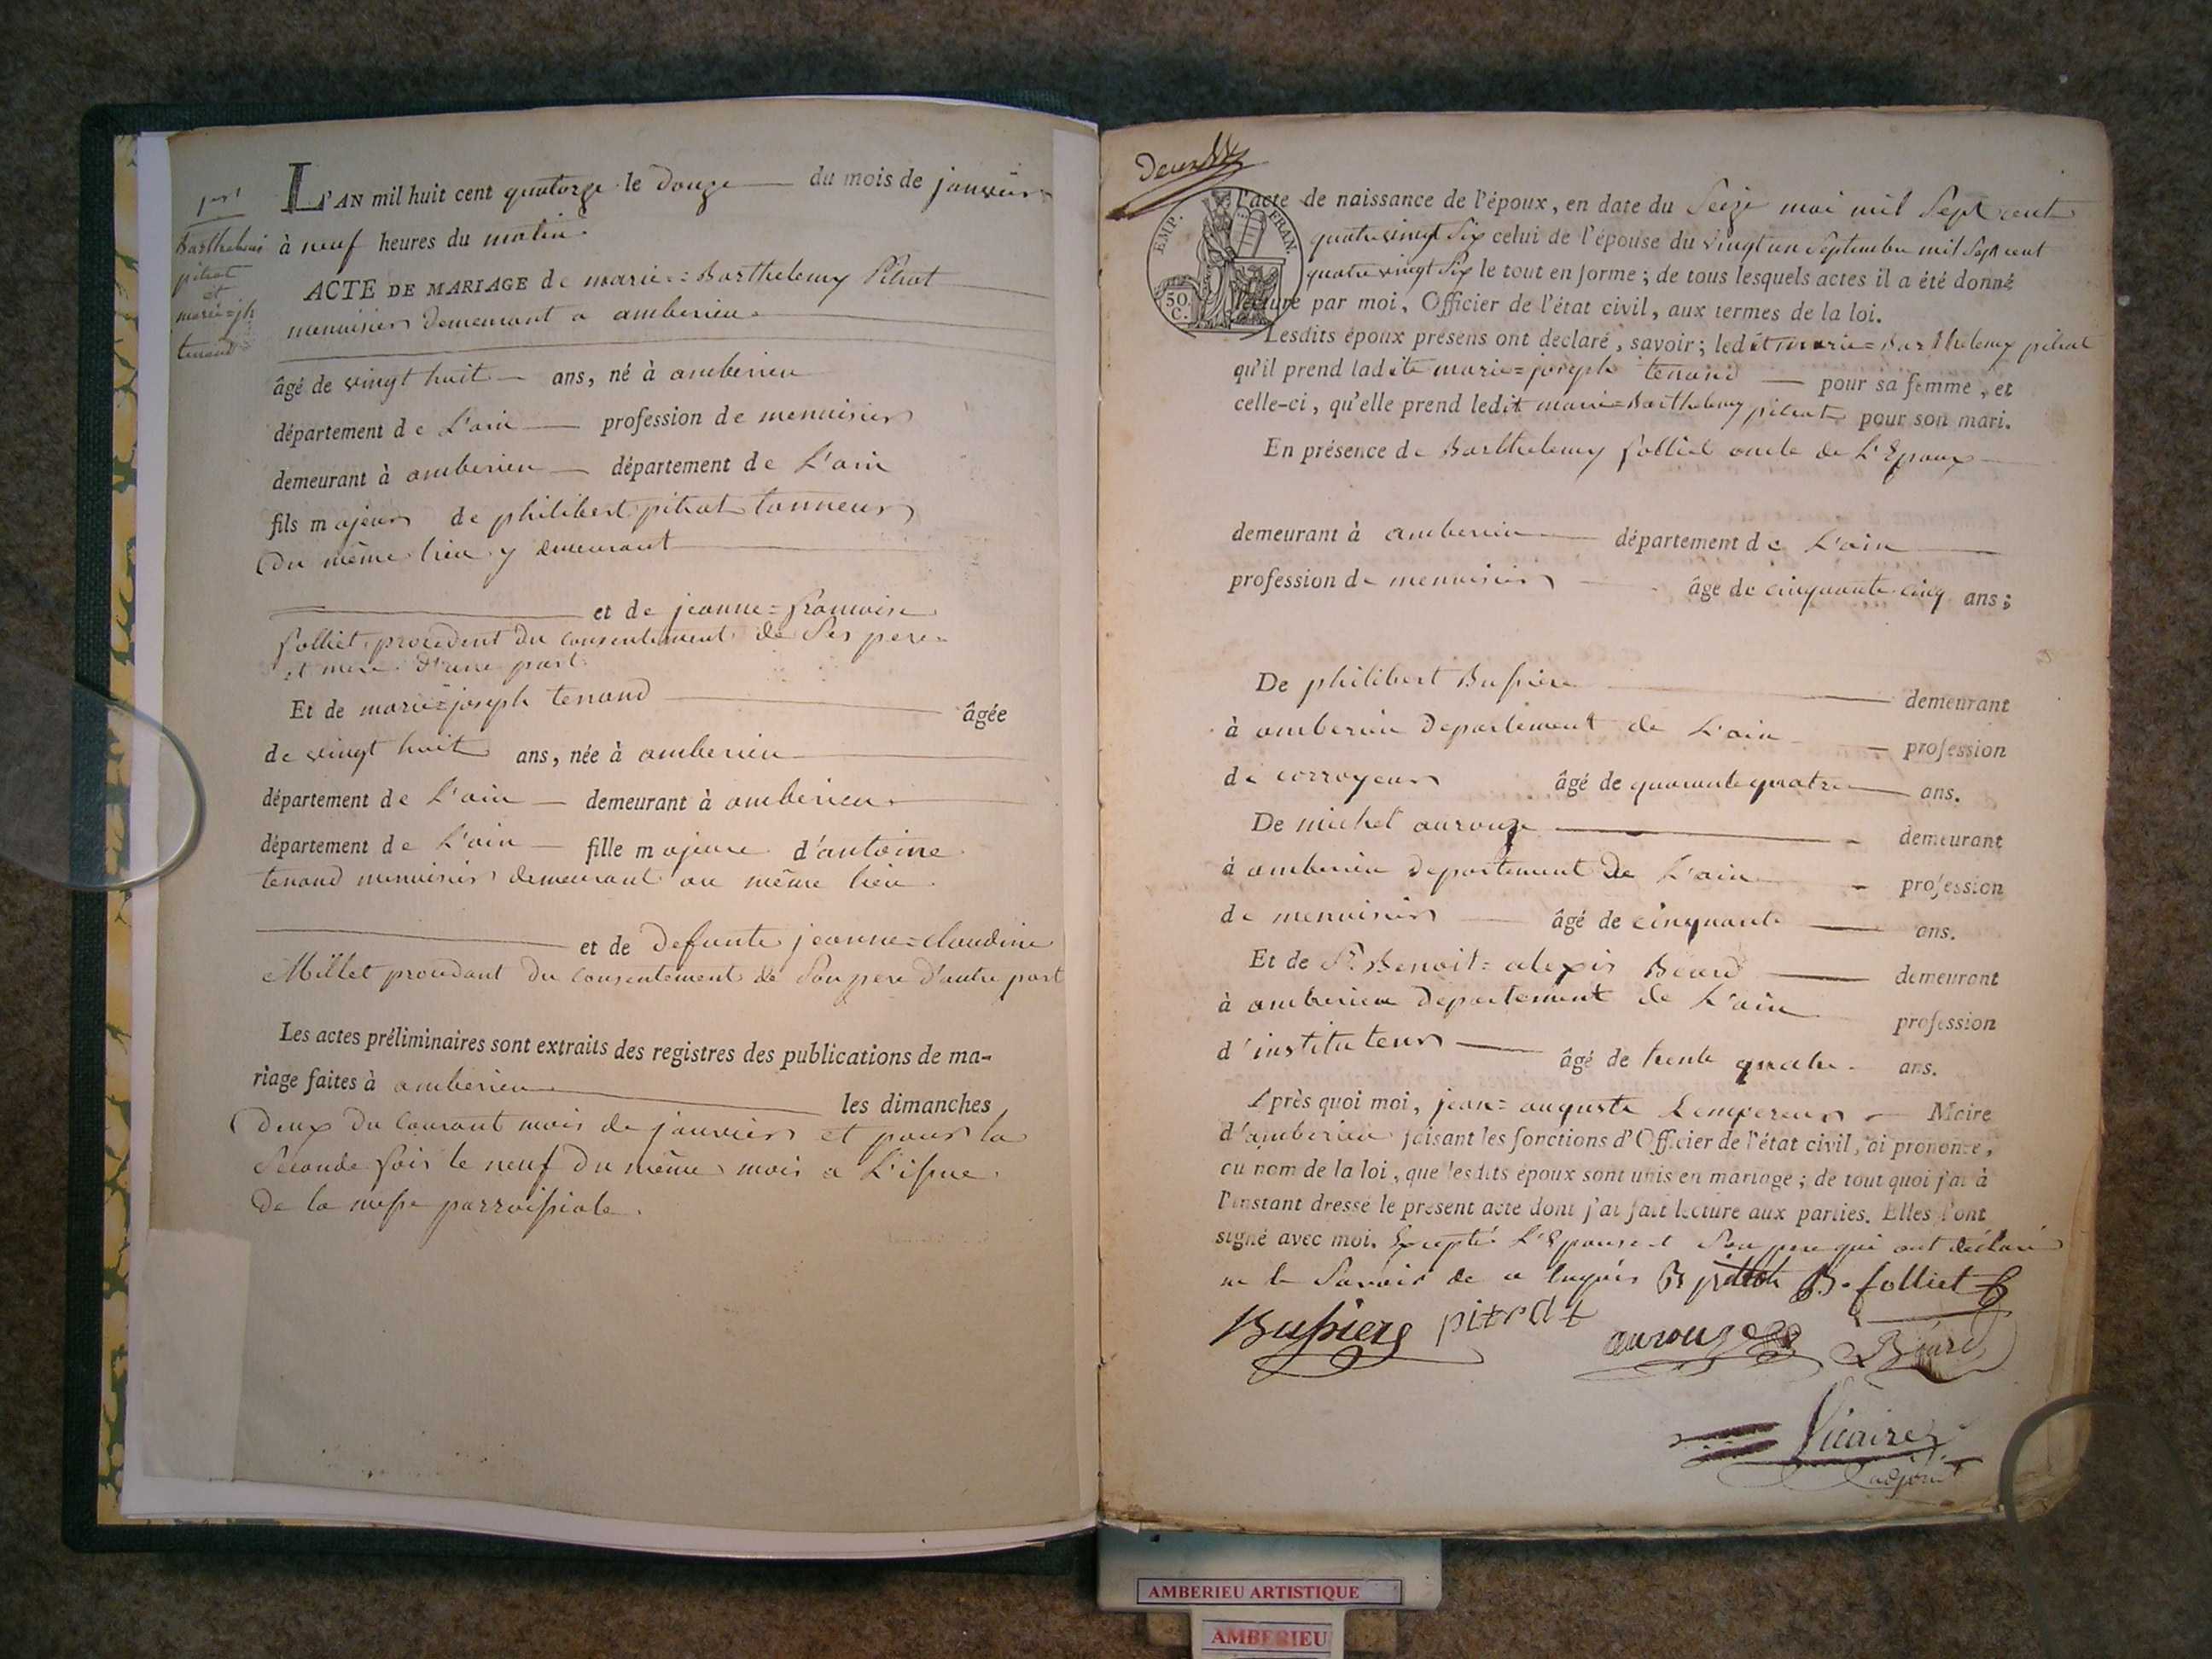 L'AN mil huit cent quatorze le douze du mois de janvier
à neuf heures du matin.
Barthelemi
pitrat
et
marie=jh
tenand
ACTE DE MARIAGE de marie=Barthelemy Pitrat
menuisier demeurant a amberieu
âgé de vingt huit ans, né à amberieu
département de L'ain profession de menuisier
demeurant à amberieu département de L'ain
fils majeur de philibert pitrat tanneur
Du même lieu y demeurant
et de jeanne=francoise
folliet, procedent du consentement de Ses pere
et mere d'une part.
Et de marie=joseph tenand âgée
de vingt huit ans, née à amberieu
département de L'ain demeurant à amberieu
département de L'ain fille majeure d'antoine
tenand menuisier demeurant au même lieu.
et de Defunte jeanne=claudine
Millet procedant du consentement de Son pere d'autre part
Les actes préliminaires sont extraits des registres des publications de ma-
riage faites à amberieu les dimanches
Deux du courant mois de janvier et pour la
Seconde fois le neuf du même mois a L'issue
de la messe parroissiale.
l'acte de naissance de l'époux, en date du Seize mai mil Sept cent
quatre vingt Six celui de l'épouse du vingt un Septembre mil Sept cent
quatre vingt Six le tout en forme; de tous lesquels actes il a été donné
lecture par moi, Officier de l'état civil, aux termes de la loi.
EMP. FRAN.
50.
C.
Lesdits époux présens ont déclaré, savoir; ledit marie=Barthelemy pitrat
qu'il prend ladite marie=joseph tenand pour sa femme, et
celle-ci, qu'elle prend ledit marie=Barthelemy pitrat pour son mari.
En présence de Barthelemy folliet oncle de L'Epoux
demeurant à amberieu département de L'ain
profession de menuisier âgé de cinquante cinq ans;
De philibert Bussiere demeurant
à amberieu Departement de L'ain profession
de corroyeur âgé de quarante quatre ans.
De michel aurouze demeurant
à amberieu departement De L'ain profession
de menuisier âgé de cinquante ans.
Et de Sr. Benoit=alexis Béard demeurant
à amberieu Departement de L'ain profession
d'instituteur âgé de trente quatre ans.
Après quoi moi, jean=auguste Lempereur Maire
d'amberieu faisant les fonctions d'Officier de l'état civil, ai prononcé,
au nom de la loi, que lesdits époux sont unis en mariage; de tout quoi j'ai à
l'instant dressé le présent acte dont j'ai fait lecture aux parties. Elles l'ont
signé avec moi. Excepté L'Epouse et Son pere qui ont déclaré
ne le Savoir de ce enquis B pitrat B. folliet
Bussiere pitrat aurouze Béard
Vicaire
adjoint
AMBERIEU ARTISTIQUE
AMBERIEU